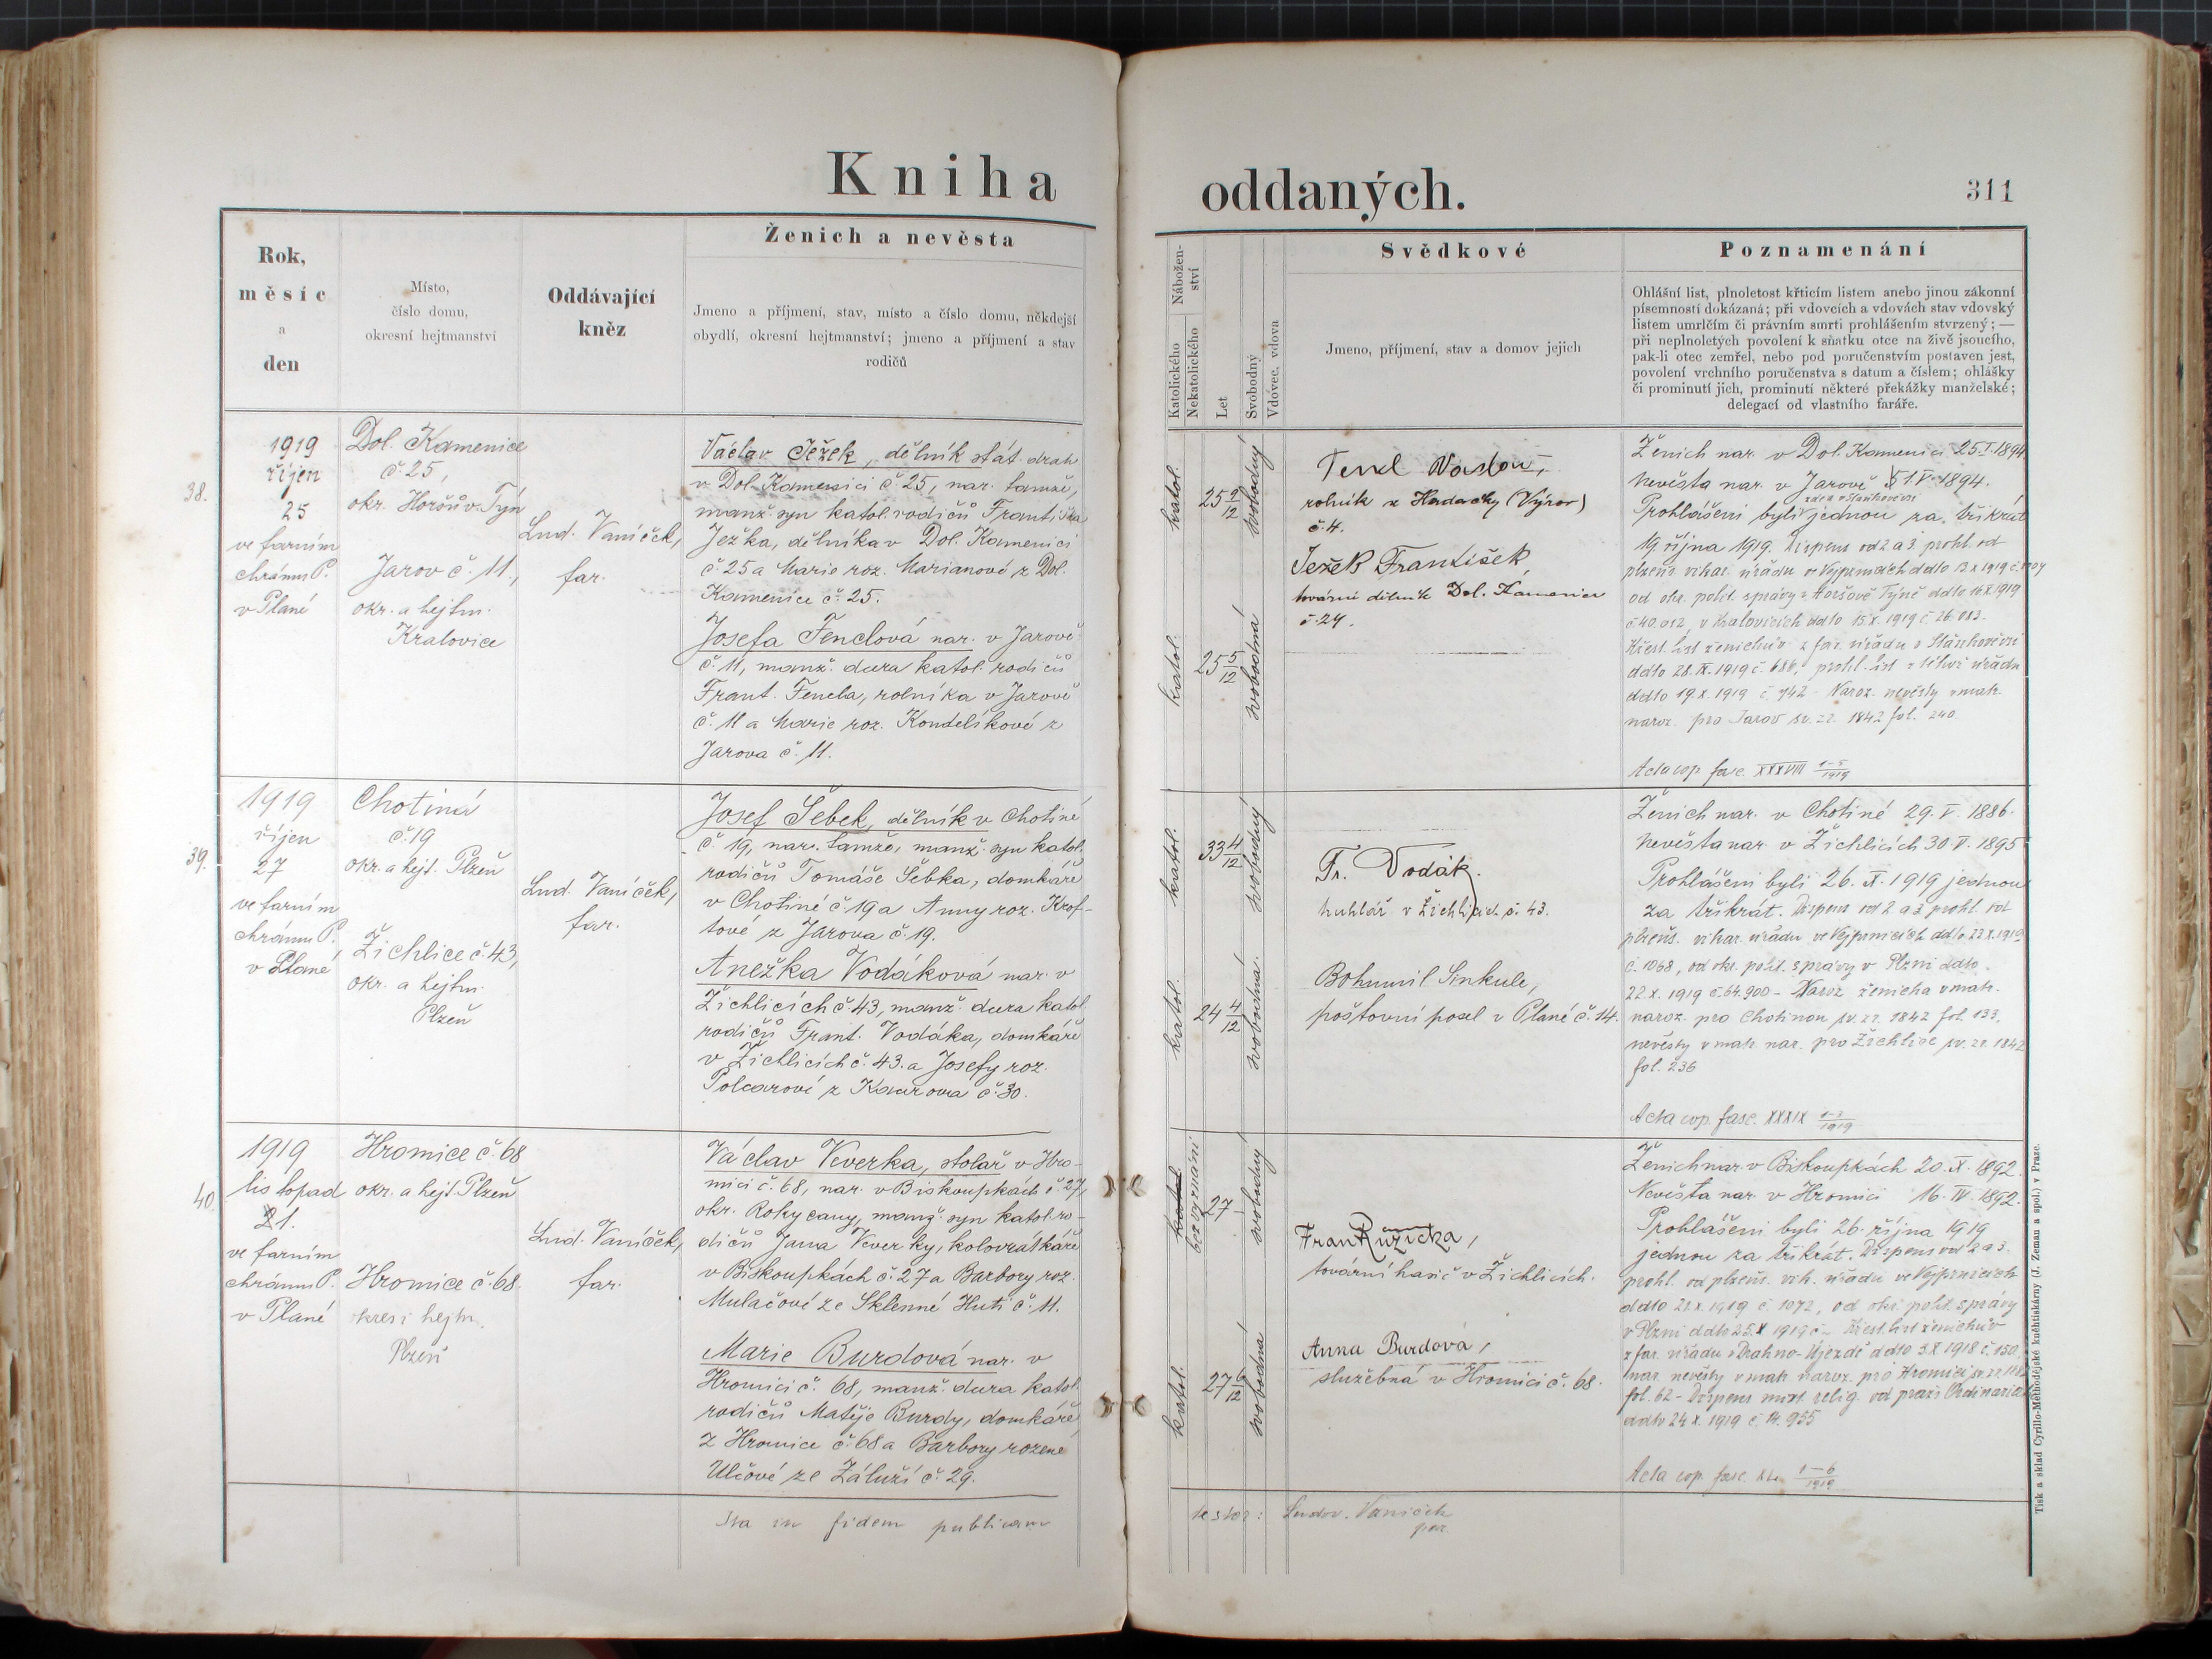 Kniha
oddaných.
311
Rok,
měsíc
a
den
Místo,
číslo domu,
okresní hejtmanství
Oddávající
kněz
Ženich a nevěsta
Jmeno a příjmení, stav, místo a číslo domu, někdejší
obydlí, okresní hejtmanství; jmeno a příjmení a stav
rodičů
Nábožen-
ství
Katolického
Nekatolického
Let
Svobodný
Vdovec, vdova
Svědkové
Jmeno, příjmení, stav a domov jejich
Poznamenání
Ohlášní list, plnoletost křticím listem anebo jinou zákonní
písemností dokázaná; při vdovcích a vdovách stav vdovský
listem umrlčím či právním smrti prohlášením stvrzený; —
při neplnoletých povolení k sňatku otce na živě jsoucího,
pak-li otec zemřel, nebo pod poručenstvím postaven jest,
povolení vrchního poručenstva s datum a číslem; ohlášky
či prominutí jich, prominutí některé překážky manželské;
delegací od vlastního faráře.
38.
1919
říjen
25
ve farním
chrámu P.
v Plané
Dol. Kamenice
č. 25,
okr. Horšův Týn
Jarov č. 11,
okr. a hejtm.
Kralovice
Lud. Vaníček,
far.
Václav Ježek, dělník stát. drah
v Dol. Kamenici č. 25, nar. tamže,
manž. syn katol. rodičů Františka
Ježka, dělníka v Dol. Kamenici
č. 25 a Marie roz. Marianové z Dol.
Kamenice č. 25.
Josefa Fenclová nar. v Jarově
č. 11, manž. dcera katol. rodičů
Frant. Fencla, rolníka v Jarově
č. 11 a Marie roz. Kondelíkové z
Jarova č. 11.
katol.
25 9/12
svobodný
katol.
25 5/12
svobodná
rolník z Hadačky (Výrov)
č. 4.
Ježek František
tovární dělník Dol. Kamenice
č. 24.
Ženich nar. v Dol. Kamenici 25. I. 1894
Nevěsta nar. v Jarově 1. V. 1894.
Prohlášeni byli jednou za třikrát
19 října 1919. Dispens od 2 a 3 prohl. od
plzeňs. vikar. úřadu ve Vejprnicích ddto 13 X 1919
od okr. polit. správy v Horšově Týně ddto 16 X 1919
č. 40.012, v Kralovicích ddto 15. X. 1919 č. 26.083.
Křest. list ženichův z far. úřadu v Staňkovi
ddto 28. IX. 1919 č. 686, prohl. list z téhož úřadu
ddto 19. X. 1919 č. 742 - Naroz. nevěsty v matr.
naroz. pro Jarov sv. zr. 1842 fol. 240.
Acta cop. fasc. XXXVIII 1-5/1919
39.
1919
říjen
27
ve farním
chrámu P.
v Plané
Chotiná
č. 19
okr. a hejt. Plzeň
Žichlice č. 43,
okr. a hejtm.
Plzeň
Lud. Vaníček,
far.
Josef Šebek, dělník v Chotiné
č. 19, nar. tamže, manž. syn katol.
rodičů Tomáše Šebka, domkáře
v Chotiné č. 19 a Anny roz. Krof-
tové z Jarova č. 19.
Anežka Vodáková nar. v
Žichlicích č. 43, manž. dcera katol.
rodičů Frant. Vodáka, domkáře
v Žichlicích č. 43. a Josefy roz.
Polcarové z Kaurova č. 30.
katol.
33 4/12
svobodný
katol.
24 4/12
svobodná
Fr. Vodák.
truhlář v Žichlicích č. 43.
Bohumil Sinkule,
poštovní posel v Plané č. 14.
Ženich nar. v Chotiné 29. V. 1886.
Nevěsta nar. v Žichlicích 30. V. 1895
Prohlášeni byli 26. X. 1919 jednou
za třikrát. Dispens od 2 a 3 prohl. od
plzeňs. vikar. úřadu ve Vejprnicích ddto 22. X. 1919
č. 1068, od okr. polit. správy v Plzni ddto
22 X. 1919 č. 64.900 - Naroz. ženicha v matr.
naroz. pro Chotinou sv. zr. 1842 fol. 133,
nevěsty v matr. nar. pro Žichlice sv. zr. 1842
fol. 236
Acta cop. fasc. XXXIX 1-3/1919
40.
1919
listopad
1.
ve farním
chrámu P.
v Plané
Hromice č. 68
okr. a hejt. Plzeň
Hromice č. 68.
okres i hejtm.
Plzeň
Lud. Vaníček,
far.
Václav Veverka, stolař v Hro-
mici č. 68, nar. v Biskoupkách č. 27,
okr. Rokycany, manž. syn katol. ro-
dičů Jana Veverky, kolovrátkáře
v Biskoupkách č. 27 a Barbory roz.
Mulačové ze Sklenné Huti č. 11.
Marie Burdová nar. v
Hromici č. 68, manž. dcera katol.
rodičů Matěje Burdy, domkáře
z Hromice č. 68 a Barbory rozené
Ulčové ze Záluží č. 29.
katol.
bez vyznání
27
svobodný
katol.
27 6/12
svobodná
Fran Růžička,
tovární hasič v Žichlicích.
Anna Burdová,
služebná v Hromici č. 68.
Ženich nar. v Biskoupkách 20. X. 1892.
Nevěsta nar. v Hromici 16. IV. 1892.
Prohlášeni byli 26. října 1919
jednou za třikrát. Dispens od 2 a 3.
prohl. od plzeňs. vik. úřadu ve Vejprnicích
ddto 22. X. 1919 č. 1072, od okr. polit. správy
v Plzni ddto 25. X 1919 č - Křest. list ženichův
z far. úřadu v Drahno-Újezdě ddto 3. X 1918 č. 150,
nar. nevěsty v matr. naroz. pro Hromici
fol. 62 - Dispens mixt. relig. od praž. Ordinariátu
ddto 24 X. 1919 č. 14.955
Acta cop. fasc. XL. 1-6/1919
Ita in fidem publicam
testor: Ludov. Vaníček
par.
Tisk a sklad Cyrillo-Methodějské knihtiskárny (J. Zeman a spol.) v Praze.